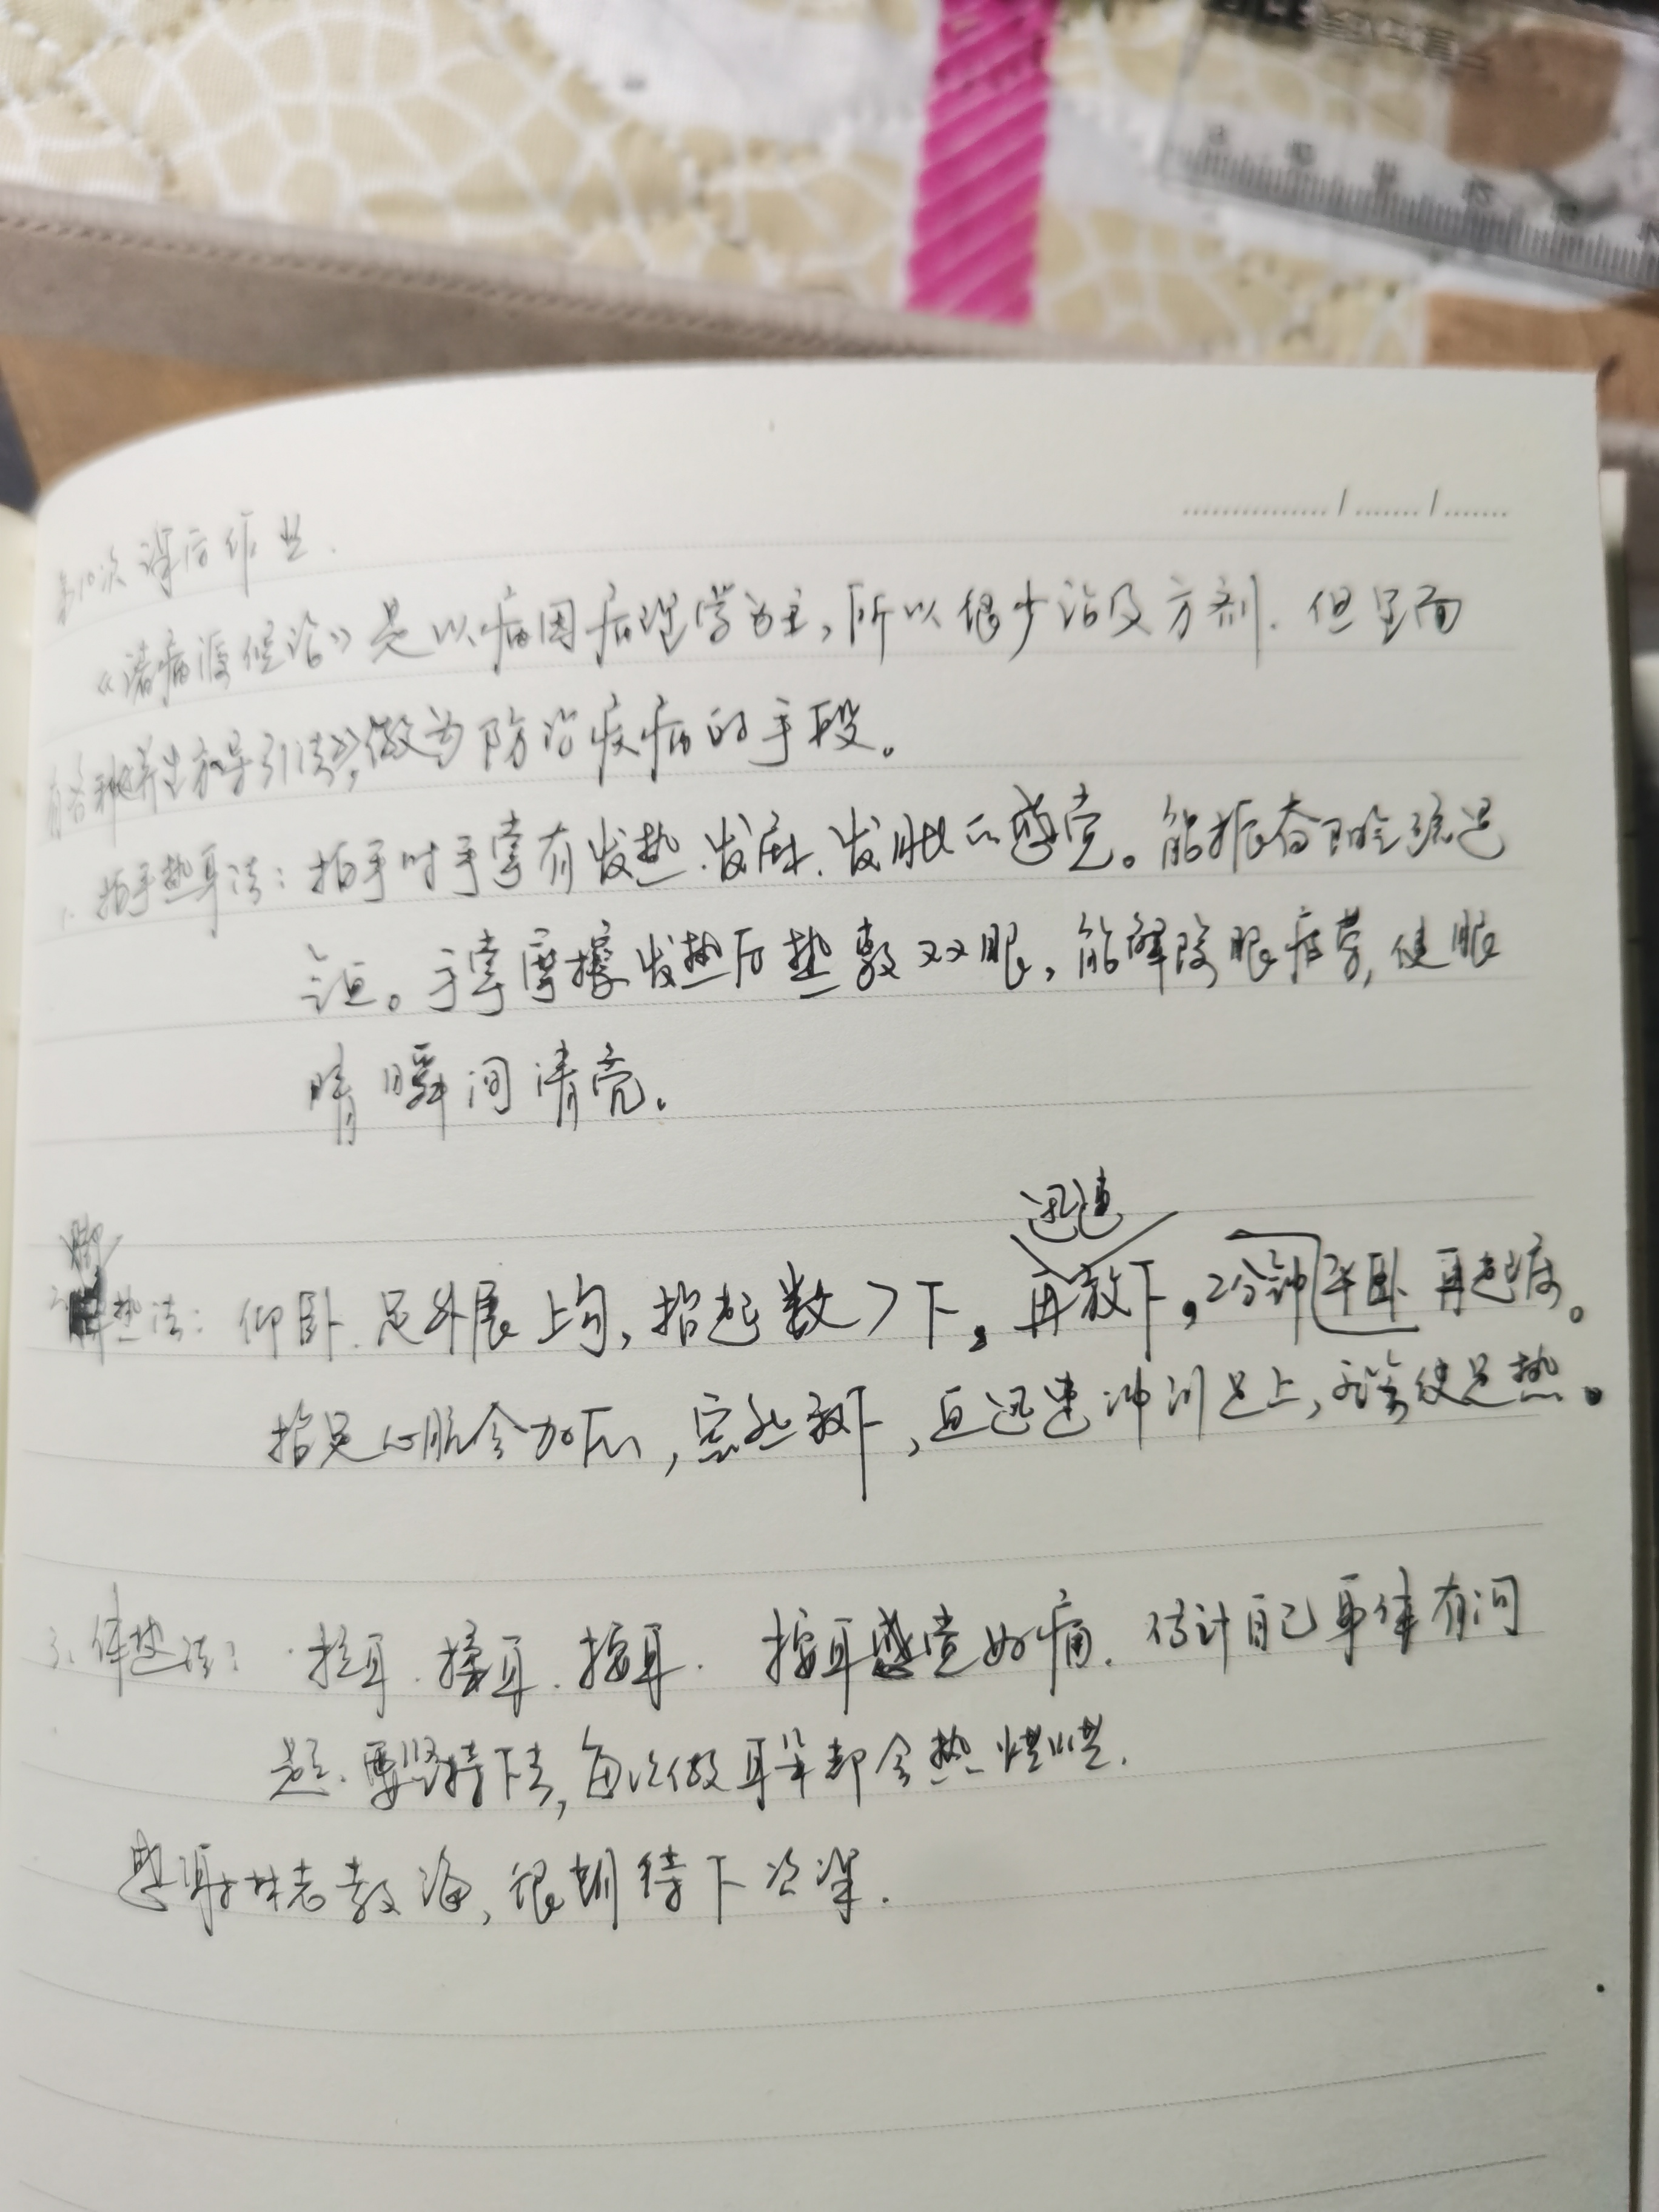 第10次课后作业.
《诸病源候论》是以病因病理学为主,所以很少论及方剂.但里面
有各种养生和导引法,做为防治疾病的手段。
1.拍手热身法:拍手时手掌有发热.发麻.发胀的感觉。能振奋阳经
手掌摩擦发热后热敷双眼,能解除眼疲劳,使眼
睛瞬间清亮。
迅速
脚
2.热法:仰卧.足外展上勾,抬起数下,再放下,2分钟平卧再起床。
抬足心脏会加压,忽然放下,血迅速冲到足上,使足热。
3.体热法:拉耳.揉耳.按耳.按耳感觉好痛.估计自己身体有问
题.要坚持下去,每次做耳朵都会热烘烘.
感谢林老教诲,很期待下次课.